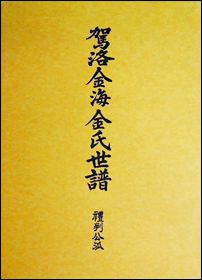 駕洛金海金氏世譜
禮判公派